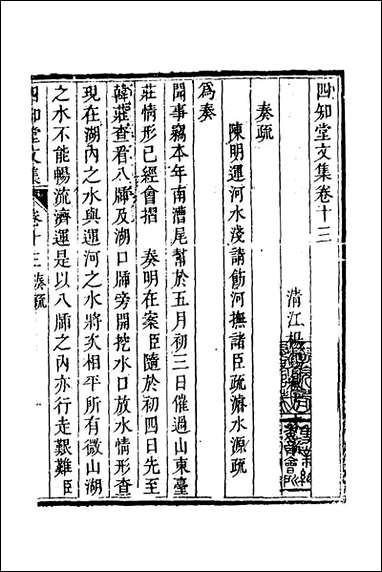 四知堂文集卷十三
清江楊
奏疏
陳明運河水淺請飭河撫諸臣疏濬水源疏
爲奏
聞事竊本年南漕尾幫於五月初三日催過山東臺
莊情形已經會摺 奏明在案臣隨於初四日先至
韓莊查看八牐及湖口牐旁開挖水口放水情形查
現在湖內之水與運河之水將次相平所有微山湖
之水不能暢流濟運是以八牐之內亦行走艱難臣
四知堂文集 卷十三 奏疏